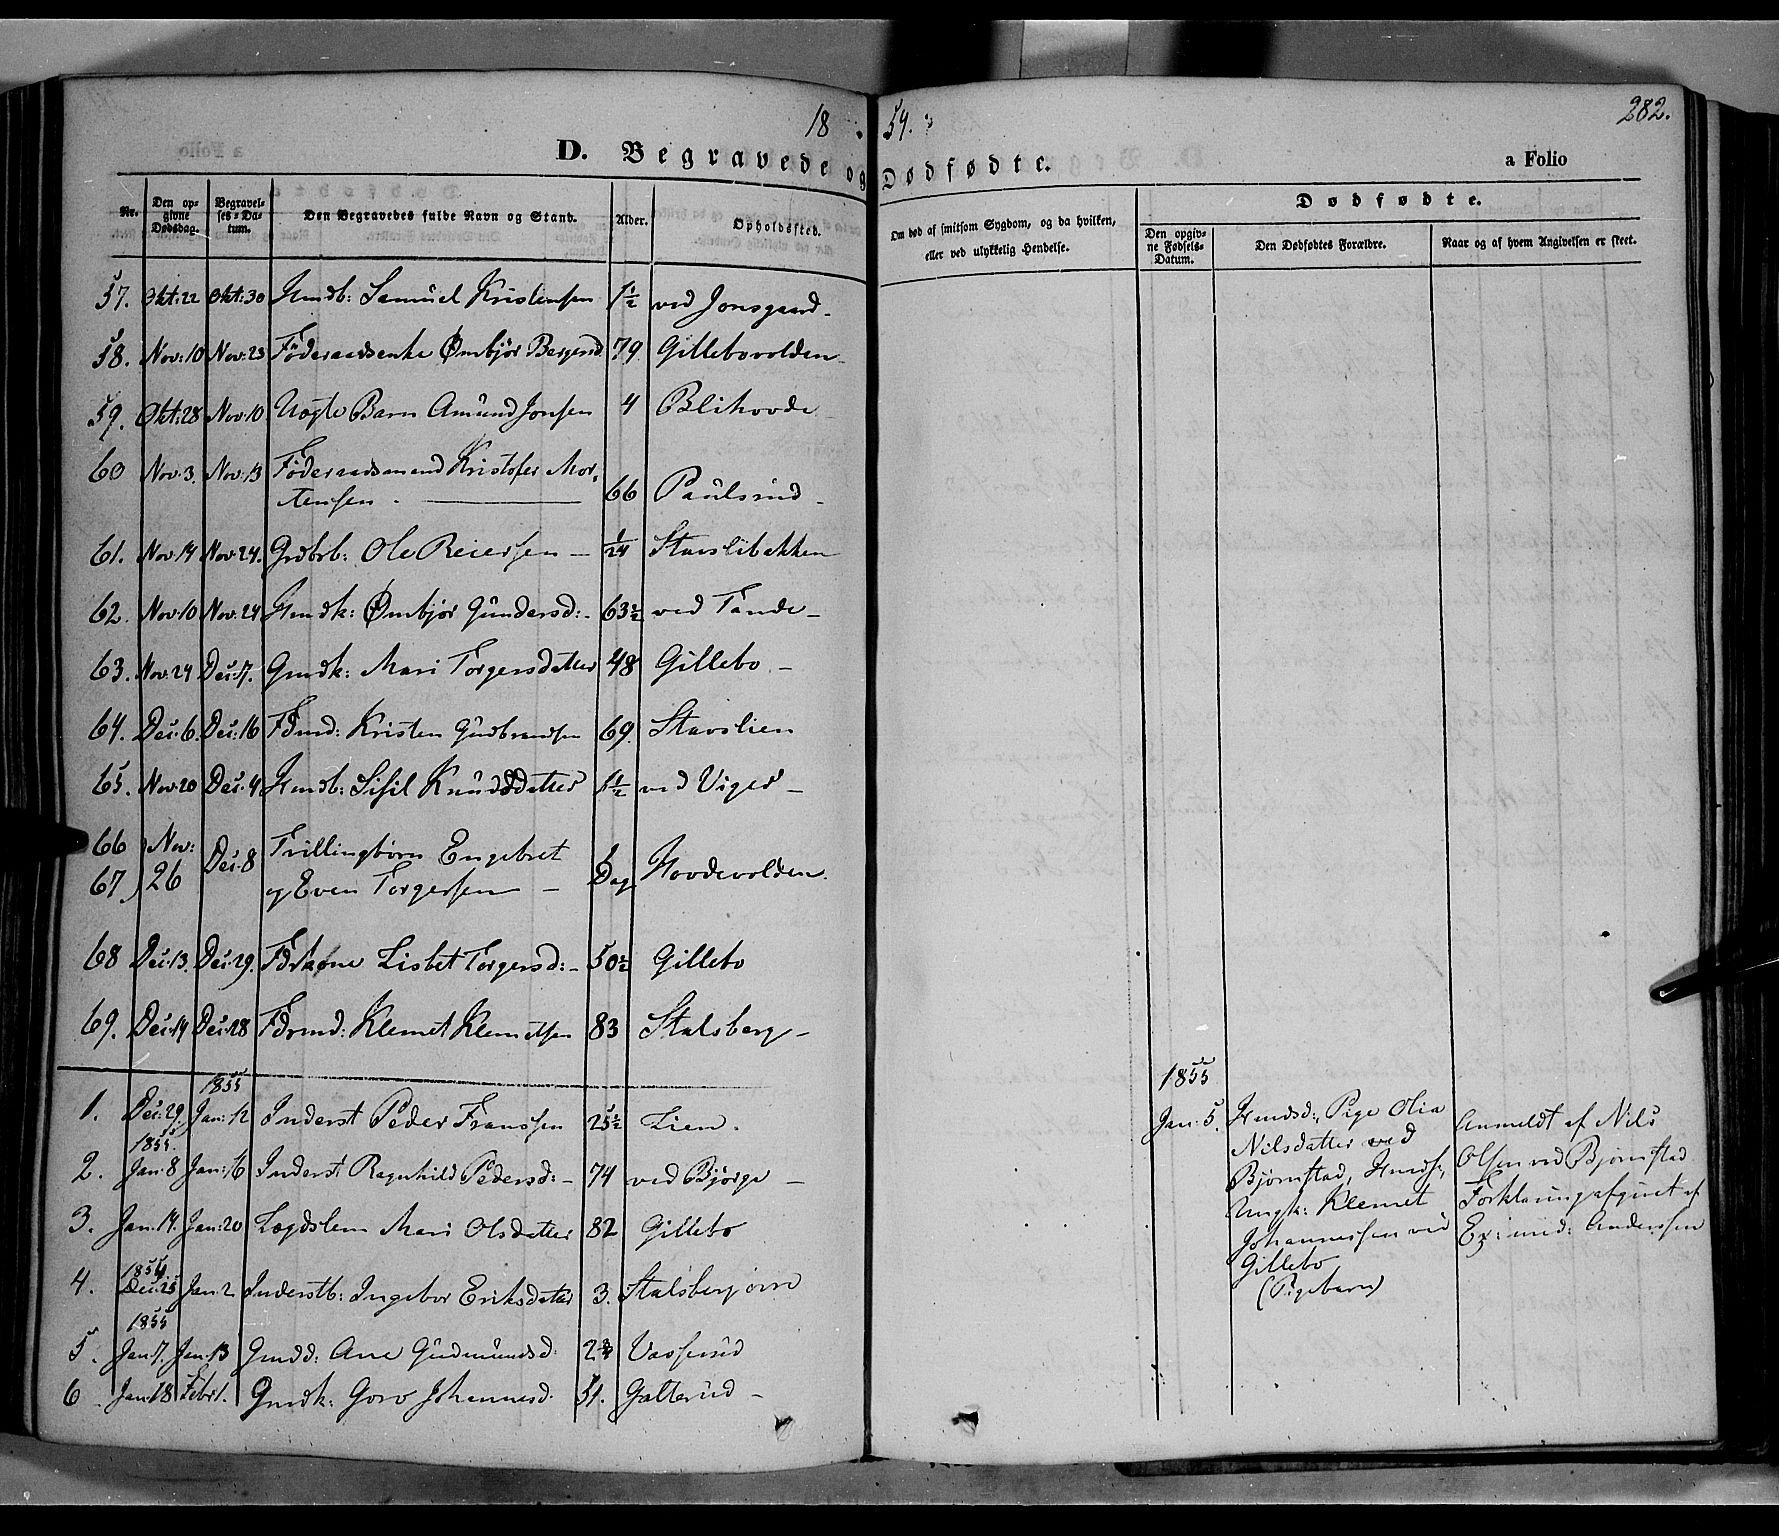 1854. 282.
D. Begravede og Dødfødte. a Folio
Nr. Den opgivne Dødsdag. Begravelses-Datum. Den Begravedes fulde Navn og Stand. Alder. Opholdssted. Om død af smitsom Sygdom, og da hvilken, eller ved ulykkelig Hendelse. Dødfødte.
Den opgivne Fødsels-Datum. Den Dødfødtes Forældre. Naar og af hvem Angivelsen er skeet.
57. Okt: 22 Okt: 30 Hmdb: Samuel Kristensen 1½ ved Jonsgaard
58. Nov: 10 Nov: 23 Føderaadsenke Ømbjør Bergersd. 79. Gillebovolden
59. Okt: 28 Nov: 10 Uægte Barn Amund Jonsen 4 Blihovde
60 Nov: 3. Nov: 13 Føderaadsmand Kristofer Mor-
tensen. 66 Paulsrud
61. Nov: 14 Nov: 24. Grdbrb: Ole Reiersen 1/24 Stavslibakken
62. Nov: 10 Nov: 24 Hmdk: Ømbjør Gundersd: 63½ ved Tande
63. Nov: 24 Dec: 7. Gmdk: Mari Torgersdatter 48 Gillebo
64. Dec: 6. Dec: 16 Fdmd: Kristen Gudbrandsen 69. Stavslien
65. Nov: 20 Dec: 4 Hmdb: Sisil Knudsdatter 1½ ved Viger
66 Nov: Dec: 8 Tvillingbørn Engebret 1 Hovdevolden.
67 26 og Even Torgersen Dag
68 Dec: 13. Dec: 29. Fdrkone Lisbet Torgersd: 50½ Gillebo
69. Dec: 14 Dec: 28 Fdrmd: Klemet Klemetsen 83 Stalsberg
1855 1855
1. Dec: 29. Jan: 12 Inderst Peder Franssen 25½ Lien.
1855.
2. Jan: 8 Jan: 16 Inderst Ragnhild Pedersd: 74 ved Bjørge
3. Jan: 14. Jan: 20 Lægdslem Mari Olsdatter 82 Gillebo
1854
4. Dec: 25 Jan: 2 Inderstb: Ingebor Eriksdatter 3. Stalsbergjørn
1855
5. Jan: 7. Jan: 13 Gmdd: Ane Gudmundsd: Vasrud
6 Jan: 18 Febr 1. Gmdk: Goro Johannesd. 51. Galterud
Jan: 5. Hmdsd: Pige Olia
Nilsdatter ved
Bjørnstad, Hmds:
Ungk: Klemet
Johannessen ved
Gillebo
(Pigebarn)
Anmeldt af Nils
Olsen ved Bjørnstad
Forklaring afgivet af
Ex: med: Anderssen